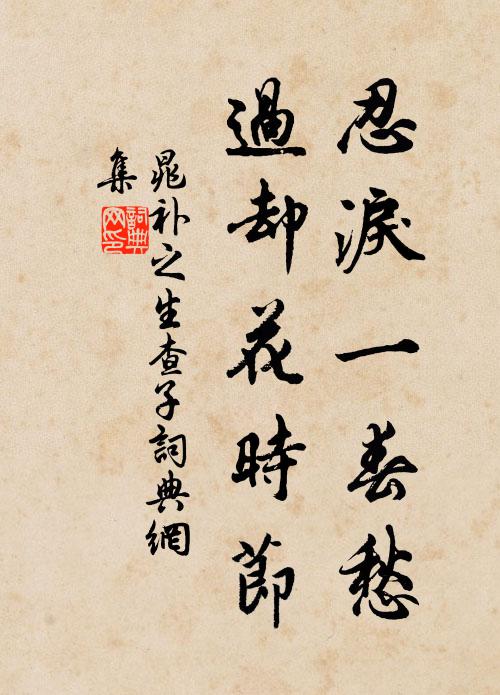 忍淚一春愁
過却花時節
晁补之生查子詞典網
集
詞典
网印